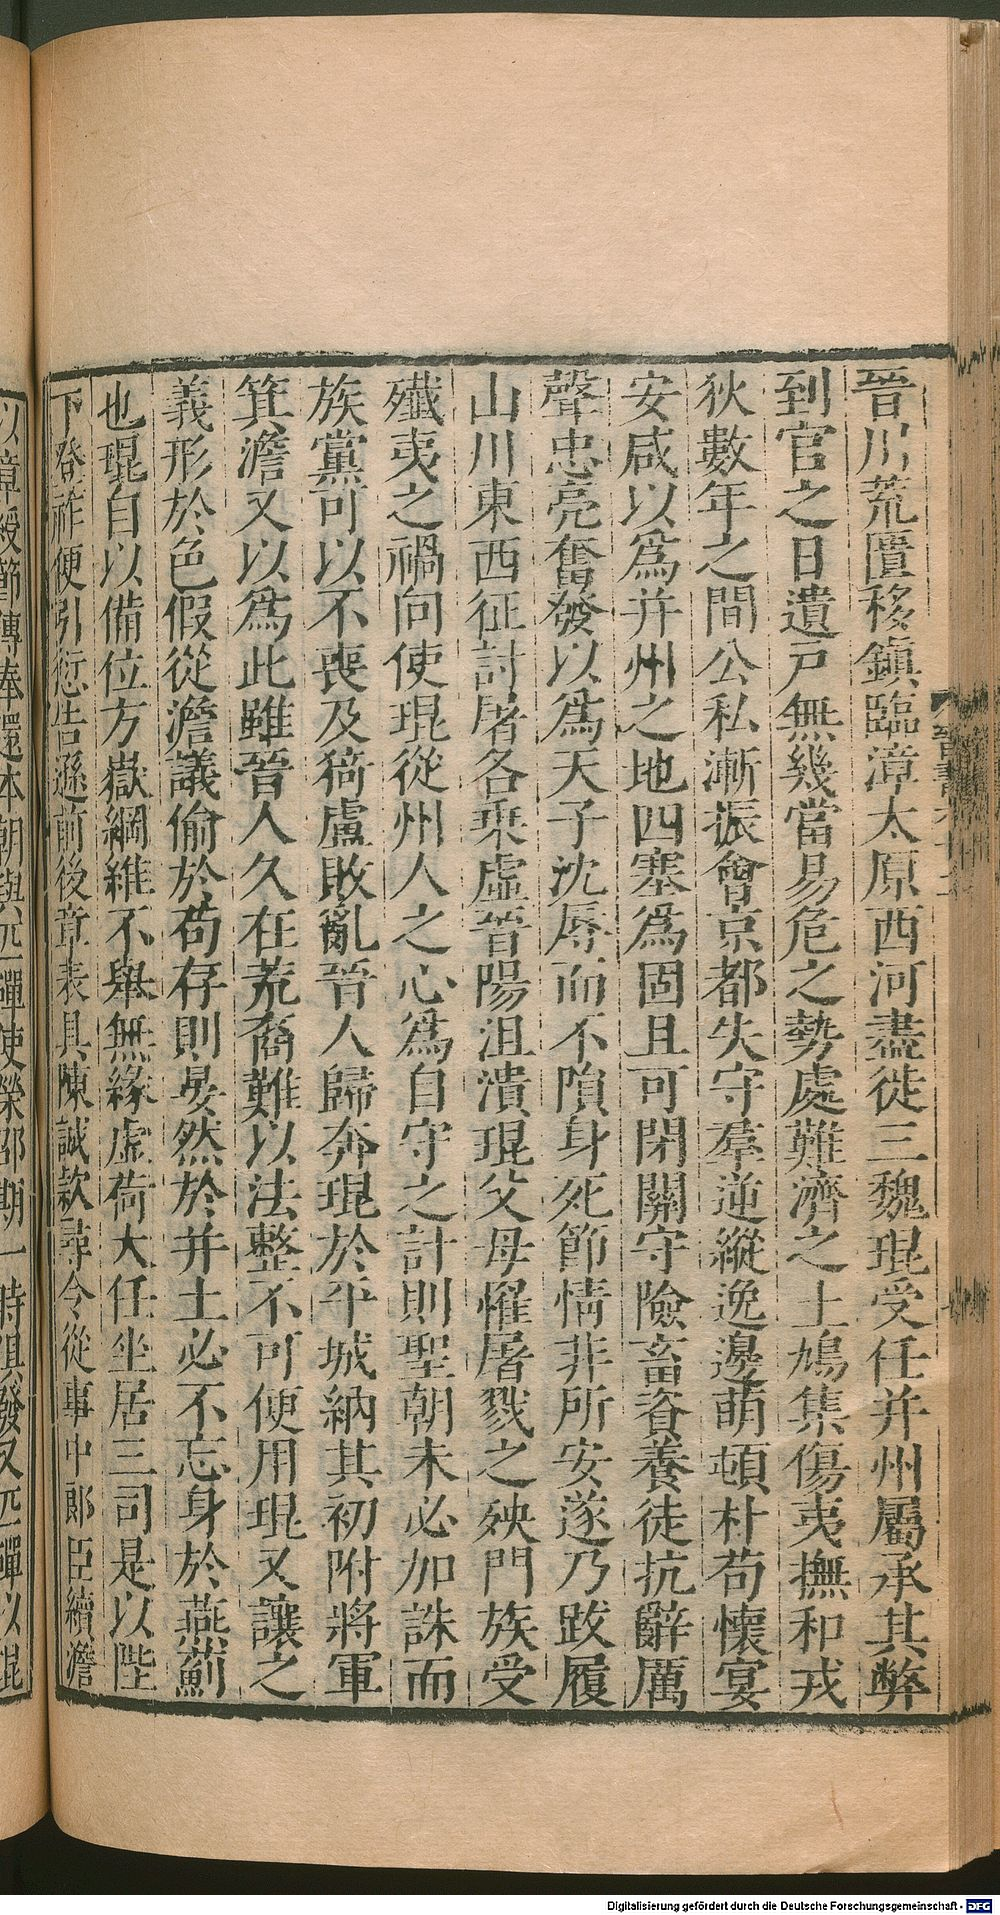 晉川荒匱移鎮臨漳太原西河盡徙三魏琨受任并州屬承其弊
到官之日遺戸無幾當易危之勢處難濟之土鳩集傷夷撫和戎
狄數年之間公私漸振會京都失守羣逆縱逸邊萌頓朴苟懷宴
安咸以爲并州之地四塞爲固且可閉關守險畜資養徒抗辭厲
聲忠亮奮發以爲天子沈辱而不隕身死節情非所安遂乃跋履
山川東西征討屠各乗虛晉陽沮潰琨父母罹屠戮之殃門族受
殲夷之禍向使琨從州人之心爲自守之計則聖朝未必加誅而
族黨可以不喪及猗盧敗亂晉人歸奔琨於平城納其初附將軍
箕澹又以爲此雖晉人久在荒裔難以法整不可便用琨又讓之
義形於色假從澹議偷於苟存則晏然於并土必不忘身於燕薊
也琨自以備位方嶽綱維不舉無緣虛荷大任坐居三司是以陛
下登祚便引愆告遜前後章表具陳誠款尋令從事中郎臣續澹
以章綬節傳奉還本朝與匹磾使榮邵期一時俱發又匹磾以琨
Digitalisierung gefördert durch die Deutsche Forschungsgemeinschaft - DFG